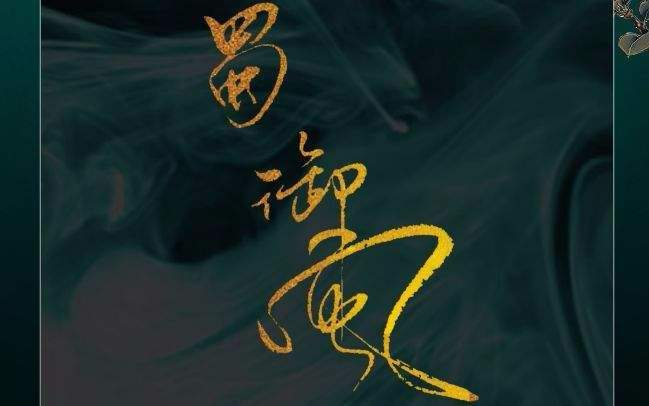 蜀
御
風